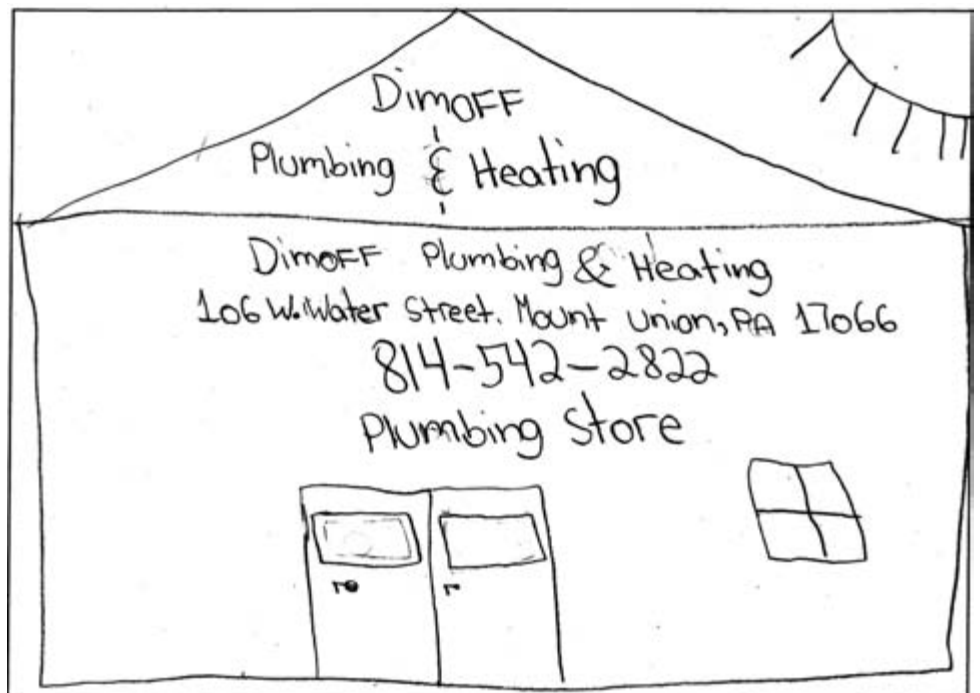 DimOFF
Plumbing & Heating
DimOFF Plumbing & Heating
106 W. Water Street. Mount Union, PA 17066
814-542-2822
Plumbing Store